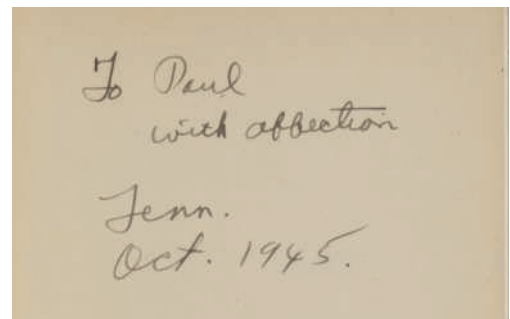 To Paul
with affection
Tenn.
Oct. 1945.